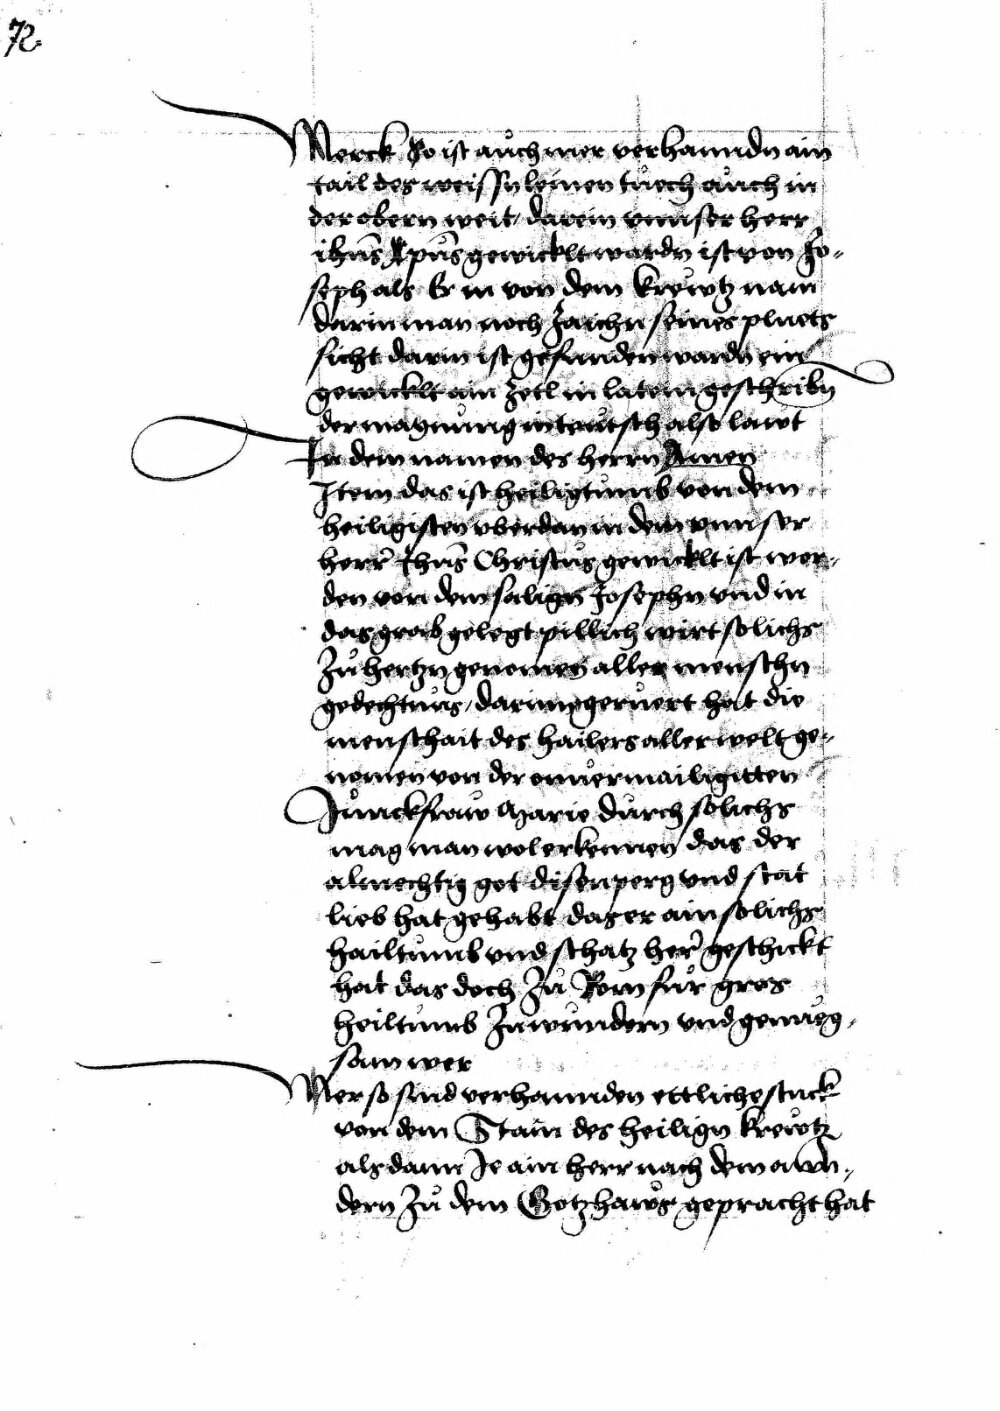 72.
Merck So ist auch mer verhanndn ain
tail des weissn leinen tuech auch in
der obern weit / darein vnnser herr
ihūs Xpūs gewicklt wardn ist von Jo-
seph als Er in von dem krewtz nam
darin man noch Zaichn seines pluets
sicht darin ist gefunden wardn ein
gewicklt ain Zetl in latein geschribn
der maynung in teutsch also lawt
In dem namen des herrn Amen
Item das ist heiligtumb von dem
heiligisten vberdan in dem vnnser
herr Jhūs Christus gewicklt ist wor-
den von dem salign Josephn vnd in
das grab gelegt pillich wirt solichs
Zu hertzn genomen aller menschn
gedechtnus / darinn geruert hat die
menschait des hailers aller welt ge-
nomen von der onuermailigitten
Junckfraw Marie durch solichs
mag man wol erkennen das der
almechtig got disen perg vnd stat
lieb hat gehabt das er ain solichs
hailtumb vnd schatz her geschickt
hat das doch Zu Rom für gros
heiltumb Zuwundern vnd genueg-
sam wer
Mer so sind verhannden ettliche stuck
von dem Stam des heilign krewtz
als dann Je ain herr nach dem ann-
dern Zu dem Gotzhaws gepracht hat